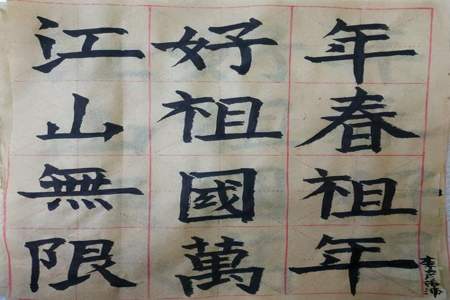 江山無限
好祖國萬
年春祖年